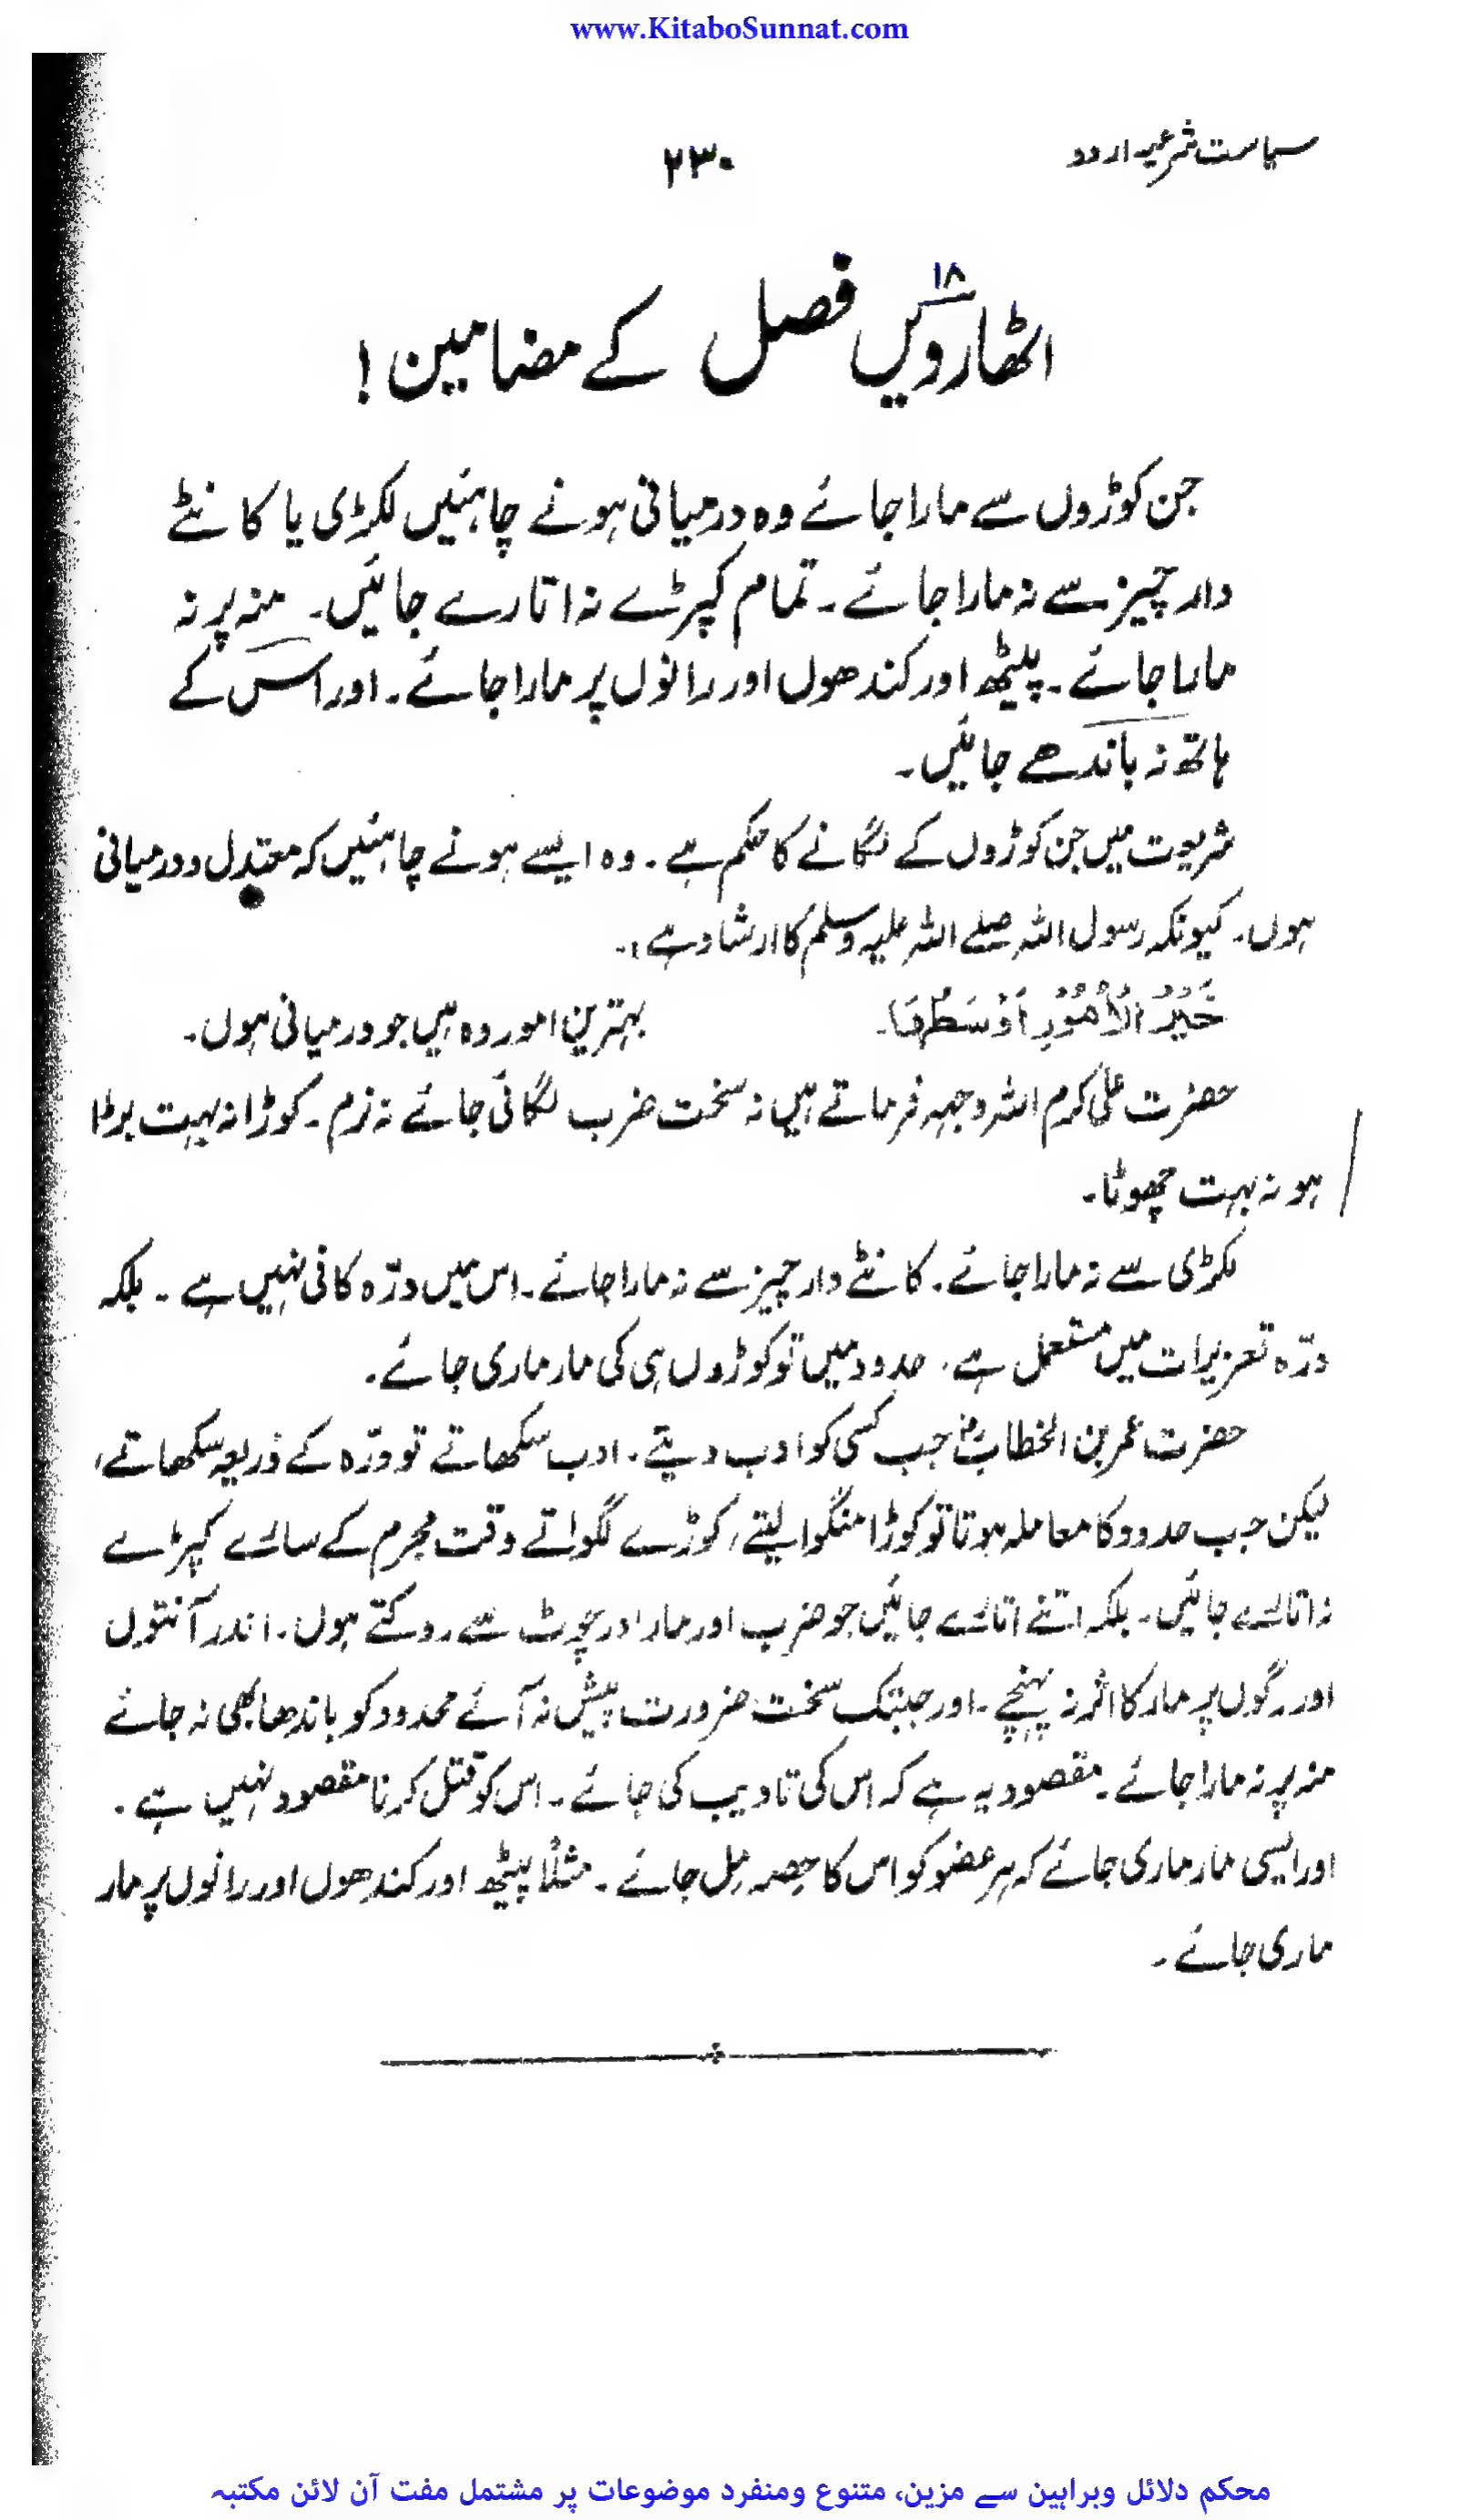 www.KitaboSunnat.com
سیاست شرعیہ اردو
۲۳۰
۱۸
اٹھارویں فصل کے مضامین!
جن کوڑوں سے مارا جائے وہ درمیانی ہونے چاہئیں لکڑی یا کانٹے
دار چیز سے نہ مارا جائے۔ تمام کپڑے نہ اتارے جائیں۔ منہ پر نہ
مارا جائے۔ پیٹھ اور کندھوں اور رانوں پر مارا جائے۔ اور اس کے
ہاتھ نہ باندھے جائیں۔
شریعت میں جن کوڑوں کے لگانے کا حکم ہے۔ وہ ایسے ہونے چاہئیں کہ معتدل و درمیانی
ہوں۔ کیونکہ رسول اللہ صلے اللہ علیہ وسلم کا ارشاد ہے:۔
خَیْرُ الْاُمُوْرِ اَوْسَطُهَا۔
بہترین امور وہ ہیں جو درمیانی ہوں۔
حضرت علیؓ کرم اللہ وجہہ فرماتے ہیں نہ سخت ضرب لگائی جائے نہ نرم۔ کوڑا نہ بہت بڑا
ہو نہ بہت چھوٹا۔
لکڑی سے نہ مارا جائے۔ کانٹے دار چیز سے نہ مارا جائے۔ اس میں درّہ کافی نہیں ہے۔ بلکہ
درّہ تعزیرات میں مستعمل ہے۔ حدود میں تو کوڑوں ہی کی مار ماری جائے۔
حضرت عمر بن الخطابؓ جب کسی کو ادب دیتے۔ ادب سکھاتے تو درّہ کے ذریعہ سکھاتے،
لیکن جب حدود کا معاملہ ہوتا تو کوڑا منگوا لیتے، کوڑے لگواتے وقت مجرم کے سارے کپڑے
نہ اتارے جائیں۔ بلکہ اتنے اتارے جائیں جو ضرب اور مار اور چوٹ سے روکتے ہوں۔ اندر آنتوں
اور رگوں پر مار کا اثر نہ پہنچے۔ اور جبتک سخت ضرورت پیش نہ آئے محدود کو باندھا بھی نہ جائے
منہ پر نہ مارا جائے۔ مقصود یہ ہے کہ اس کی تادیب کی جائے۔ اس کو قتل کرنا مقصود نہیں ہے۔
اور ایسی مار ماری جائے کہ ہر عضو کو اس کا حصہ مل جائے۔ مثلاً پیٹھ اور کندھوں اور رانوں پر مار
ماری جائے۔
محکم دلائل وبراہین سے مزین، متنوع ومنفرد موضوعات پر مشتمل مفت آن لائن مکتبہ